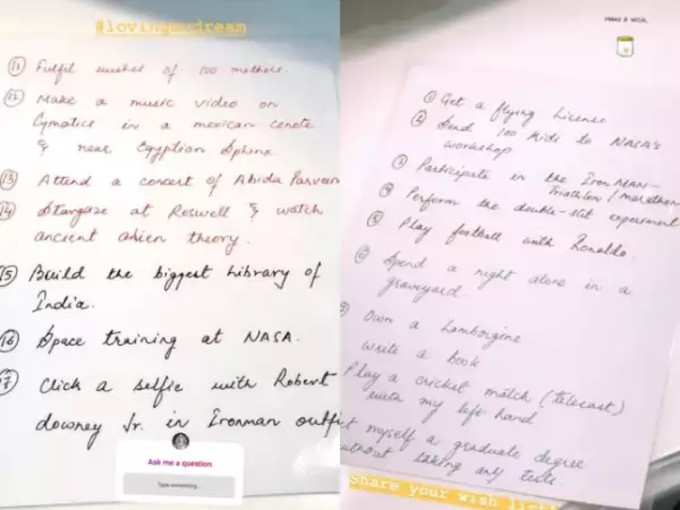 #lovingmydream
(11) Fulfil wishes of 100 mothers.
(12) Make a music video on
Cymatics in a mexican cenote
& near Egyptian Sphinx
(13) Attend a concert of Abida Parveen
(14) Stargaze at Roswell & watch
ancient alien theory.
15) Build the biggest library of
India.
(16) Space training at NASA.
17) Click a selfie with Robert
downey Jr. in Ironman outfit
Ask me a question
Type something...
MAKE A WISH,
(1) Get a flying License
(2) Send 100 kids to NASA's
workshop
(3) Participate in the Iron MAN-
Triathlon / marathon
(4) Perform the double-slit experiment
(5) Play football with Ronaldo.
(6) Spend a night alone in a
graveyard.
Own a Lamborgine
write a book
Play a cricket match (telecast)
with my left hand
myself a graduate degree
without taking any tests.
Share your wish list!